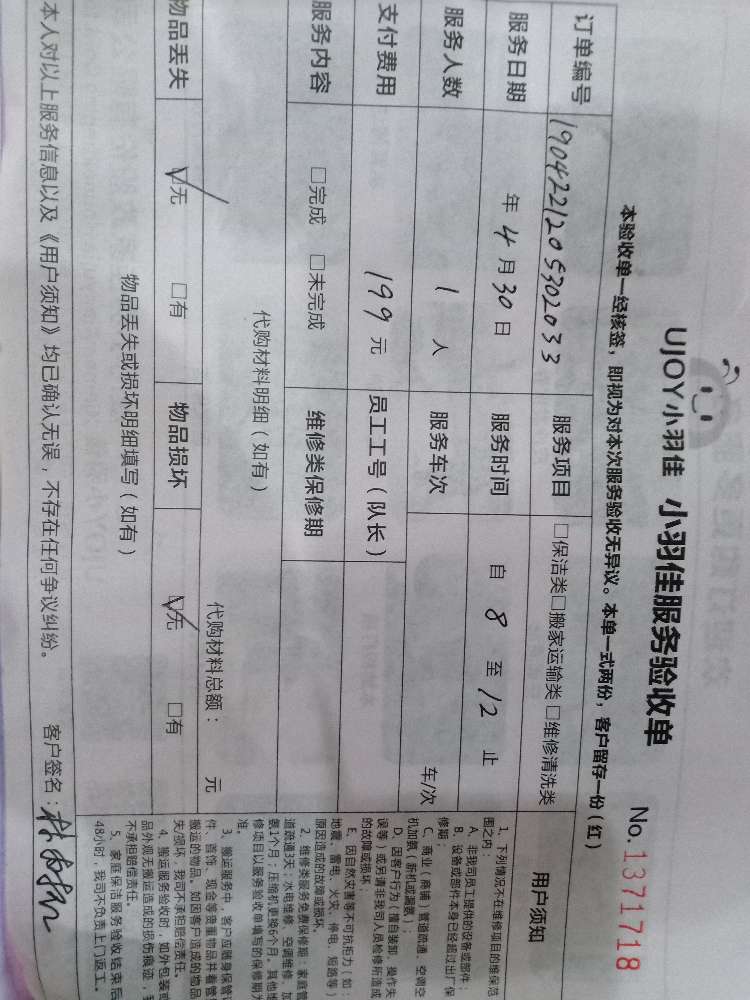 UJOY小羽佳 小羽佳服务验收单
No.1371718
本验收单一经核签，即视为对本次服务验收无异议。本单一式两份，客户留存一份（红）
订单编号 1904221205302033 服务项目 □保洁类□搬家运输类□维修清洗类
服务日期 年 4 月 30 日 服务时间 自 8 至 12 止
服务人数 1 人 服务车次 车/次
支付费用 199 元 员工工号（队长）
服务内容 □完成 □未完成 维修类保修期
代购材料明细（如有）
代购材料总额： 元
物品丢失 ☑无 □有 物品损坏 ☑无 □有
物品丢失或损坏明细填写（如有）
本人对以上服务信息以及《用户须知》均已确认无误，不存在任何争议纠纷。 客户签名：
用户须知
1、下列情况不在维修项目的维保范
围之内：
A、非我司员工提供的设备或部件；
B、设备或部件本身已经超过出厂保
修期；
C、商业（商铺）管道疏通、空调空
机加氨（新机或漏氨）；
D、因客户行为（擅自装卸、操作失
误等）或另请非我司人员检修所造成
的故障或损坏
E、因自然灾害等不可抗拒力（如：
地震、雷电、火灾、停电、短路等）
原因造成的故障或损坏。
2、维修类服务免费保修期：家庭管
道疏通3天；水电维修、空调维修、加
氨1个月；压缩机更换6个月。其他维
修项目以服务验收单填写的保修期为
准。
3、搬运服务中，客户应随身保管证
件、首饰、现金等贵重物品并看管
搬运的物品。如因客户造成的物品
失/损坏，我司不承担赔偿责任。
4、搬运服务验收时，如外包装或
品外观无搬运造成的损伤痕迹，我
不承担赔偿责任。
5、家庭保洁服务验收结束后
48小时，我司不负责上门返工。